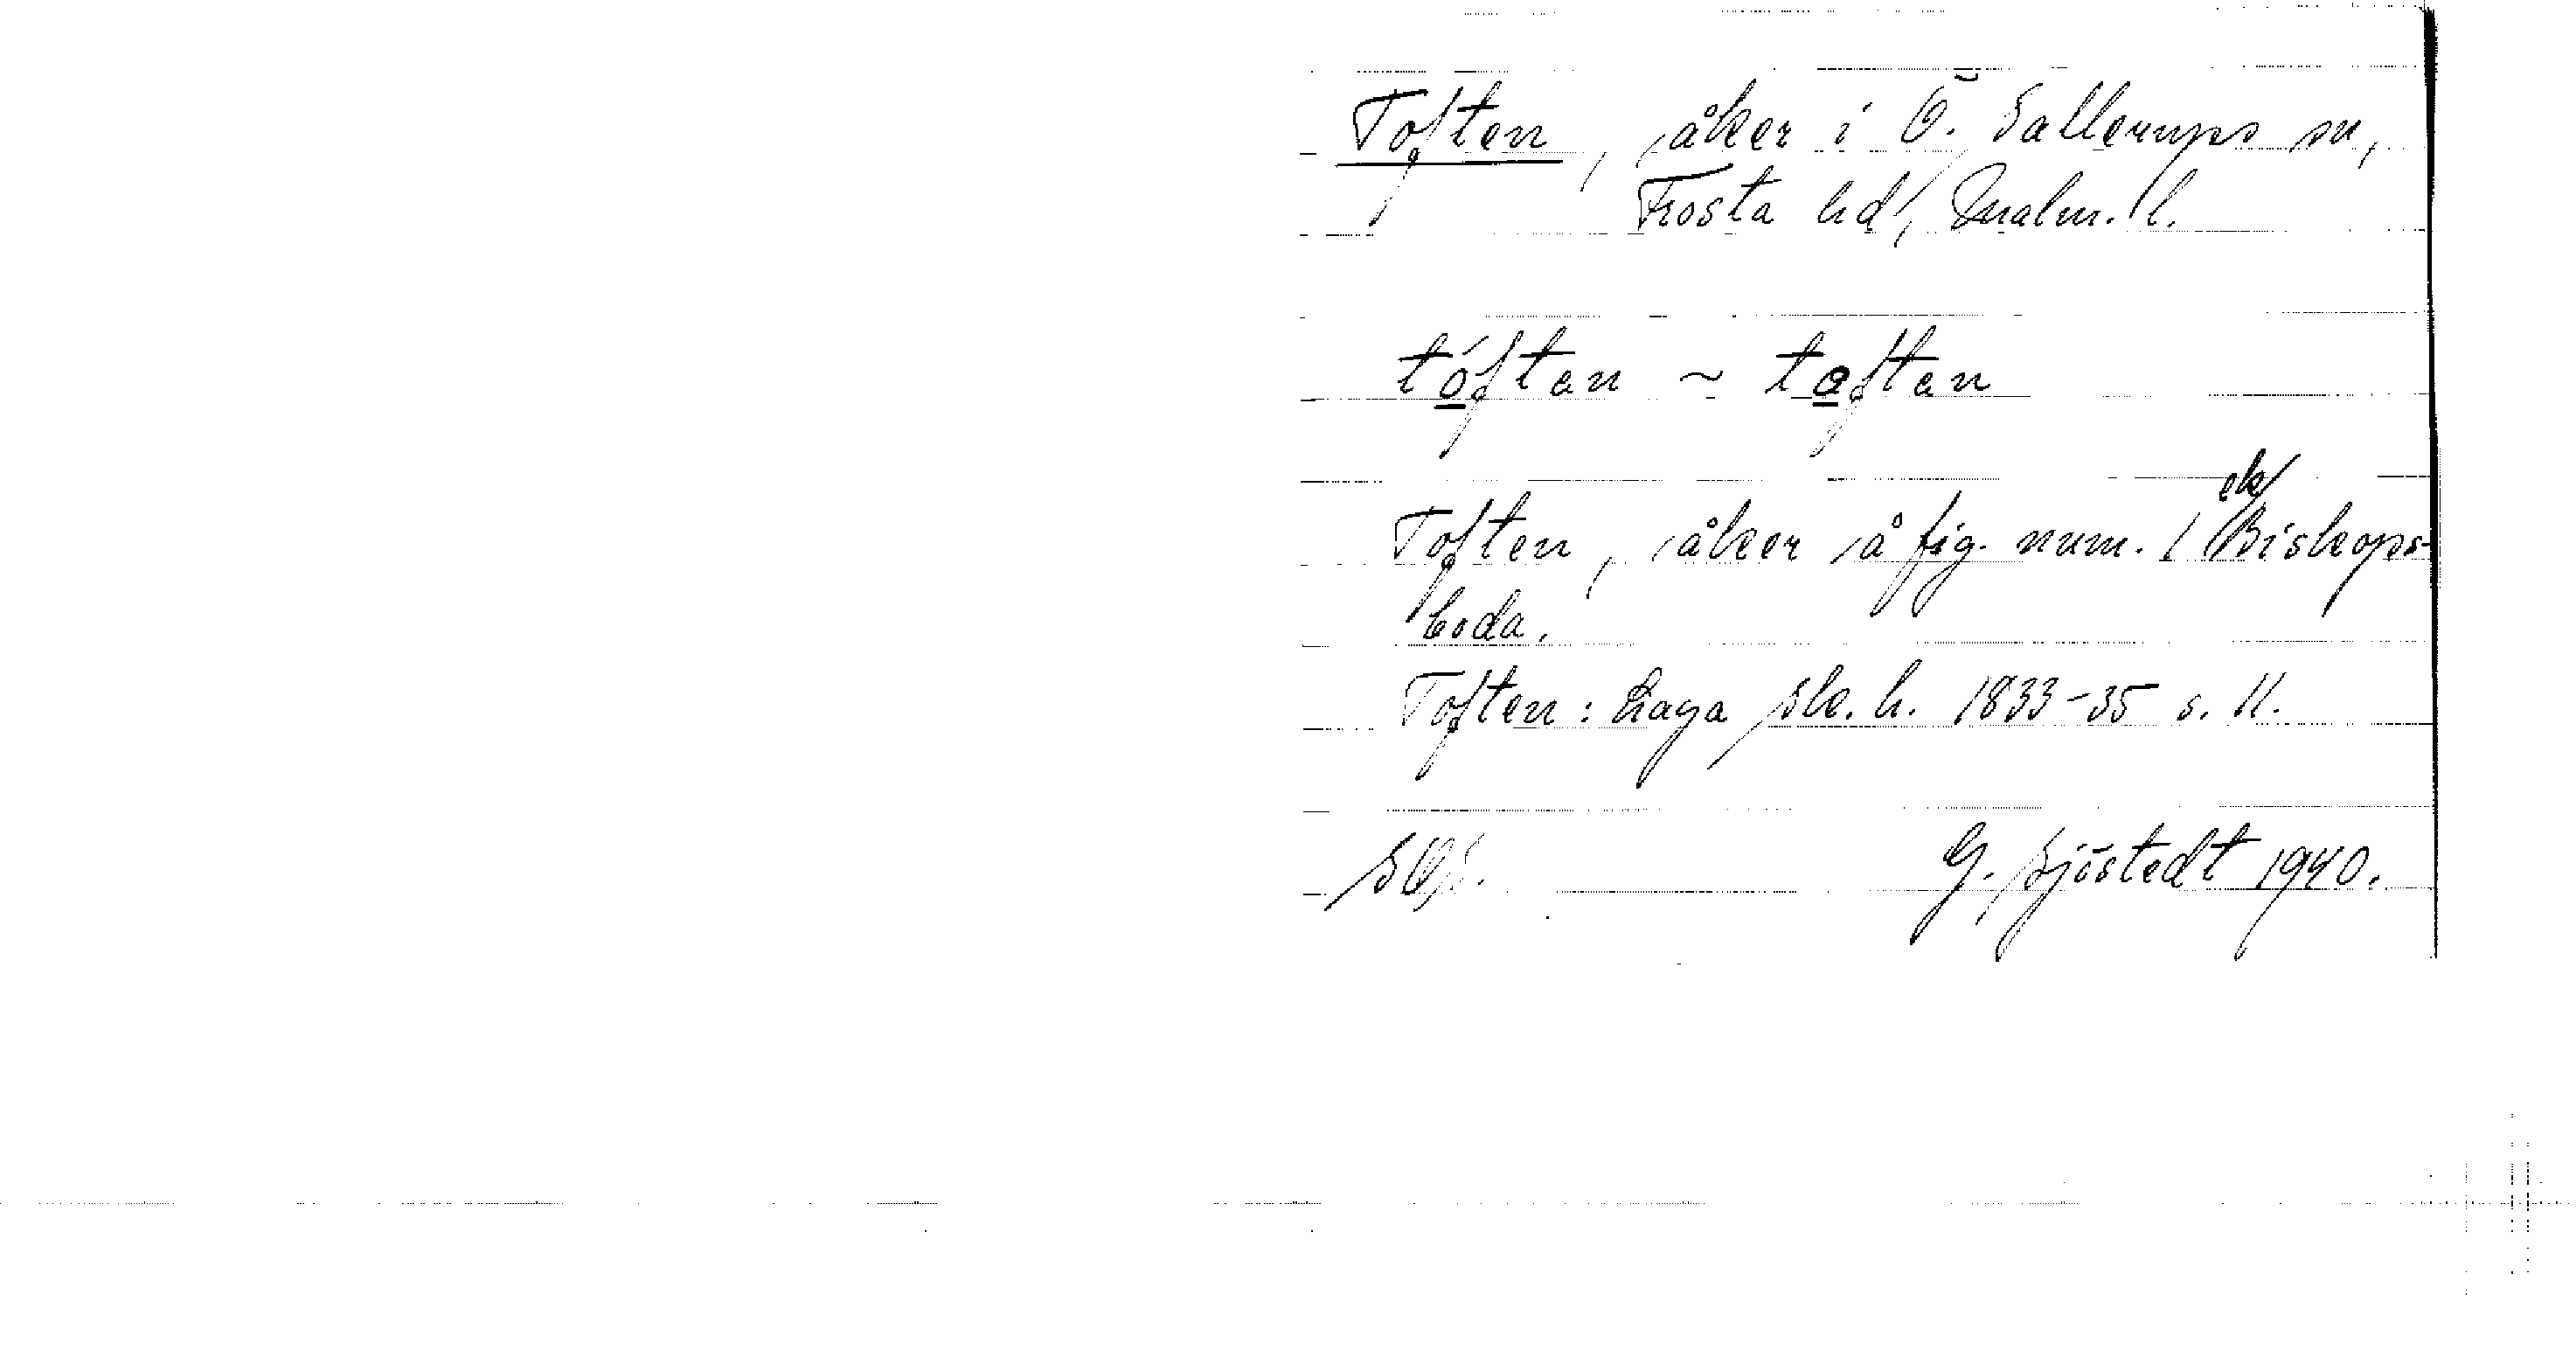 Toften, åker i Ö. Sallerups sn,
Frosta hd, Malm. l.
tóften ~ toften
Toften, åker å fig. num. 1 ek Biskops-
boda.
Toften: Laga sk. h. 1833-35 s. 11.
G. Sjöstedt 1940.